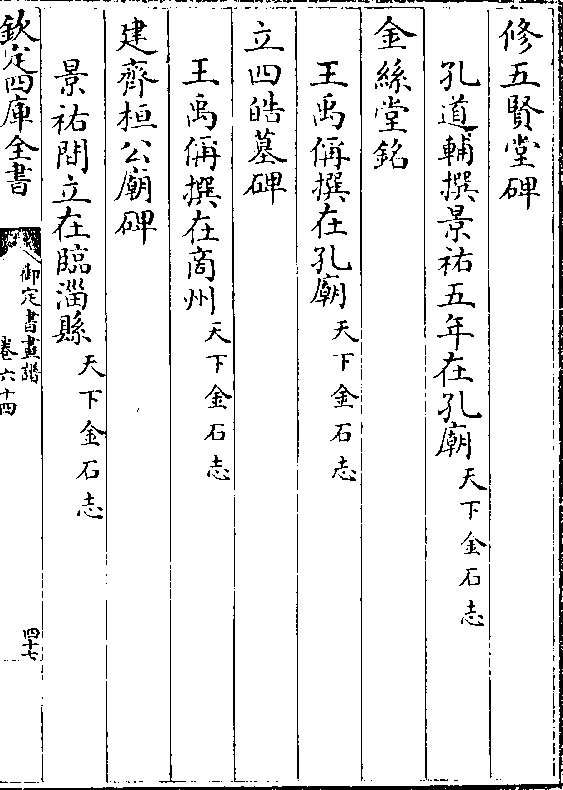 修五賢堂碑
孔道輔撰景祐五年在孔廟天下金石志
金絲堂銘
王禹偁撰在孔廟天下金石志
立四皓墓碑
王禹偁撰在商州天下金石志
建齊桓公廟碑
景祐間立在臨淄縣天下金石志
欽定四庫全書
御定書畫譜
卷六十四
四十七